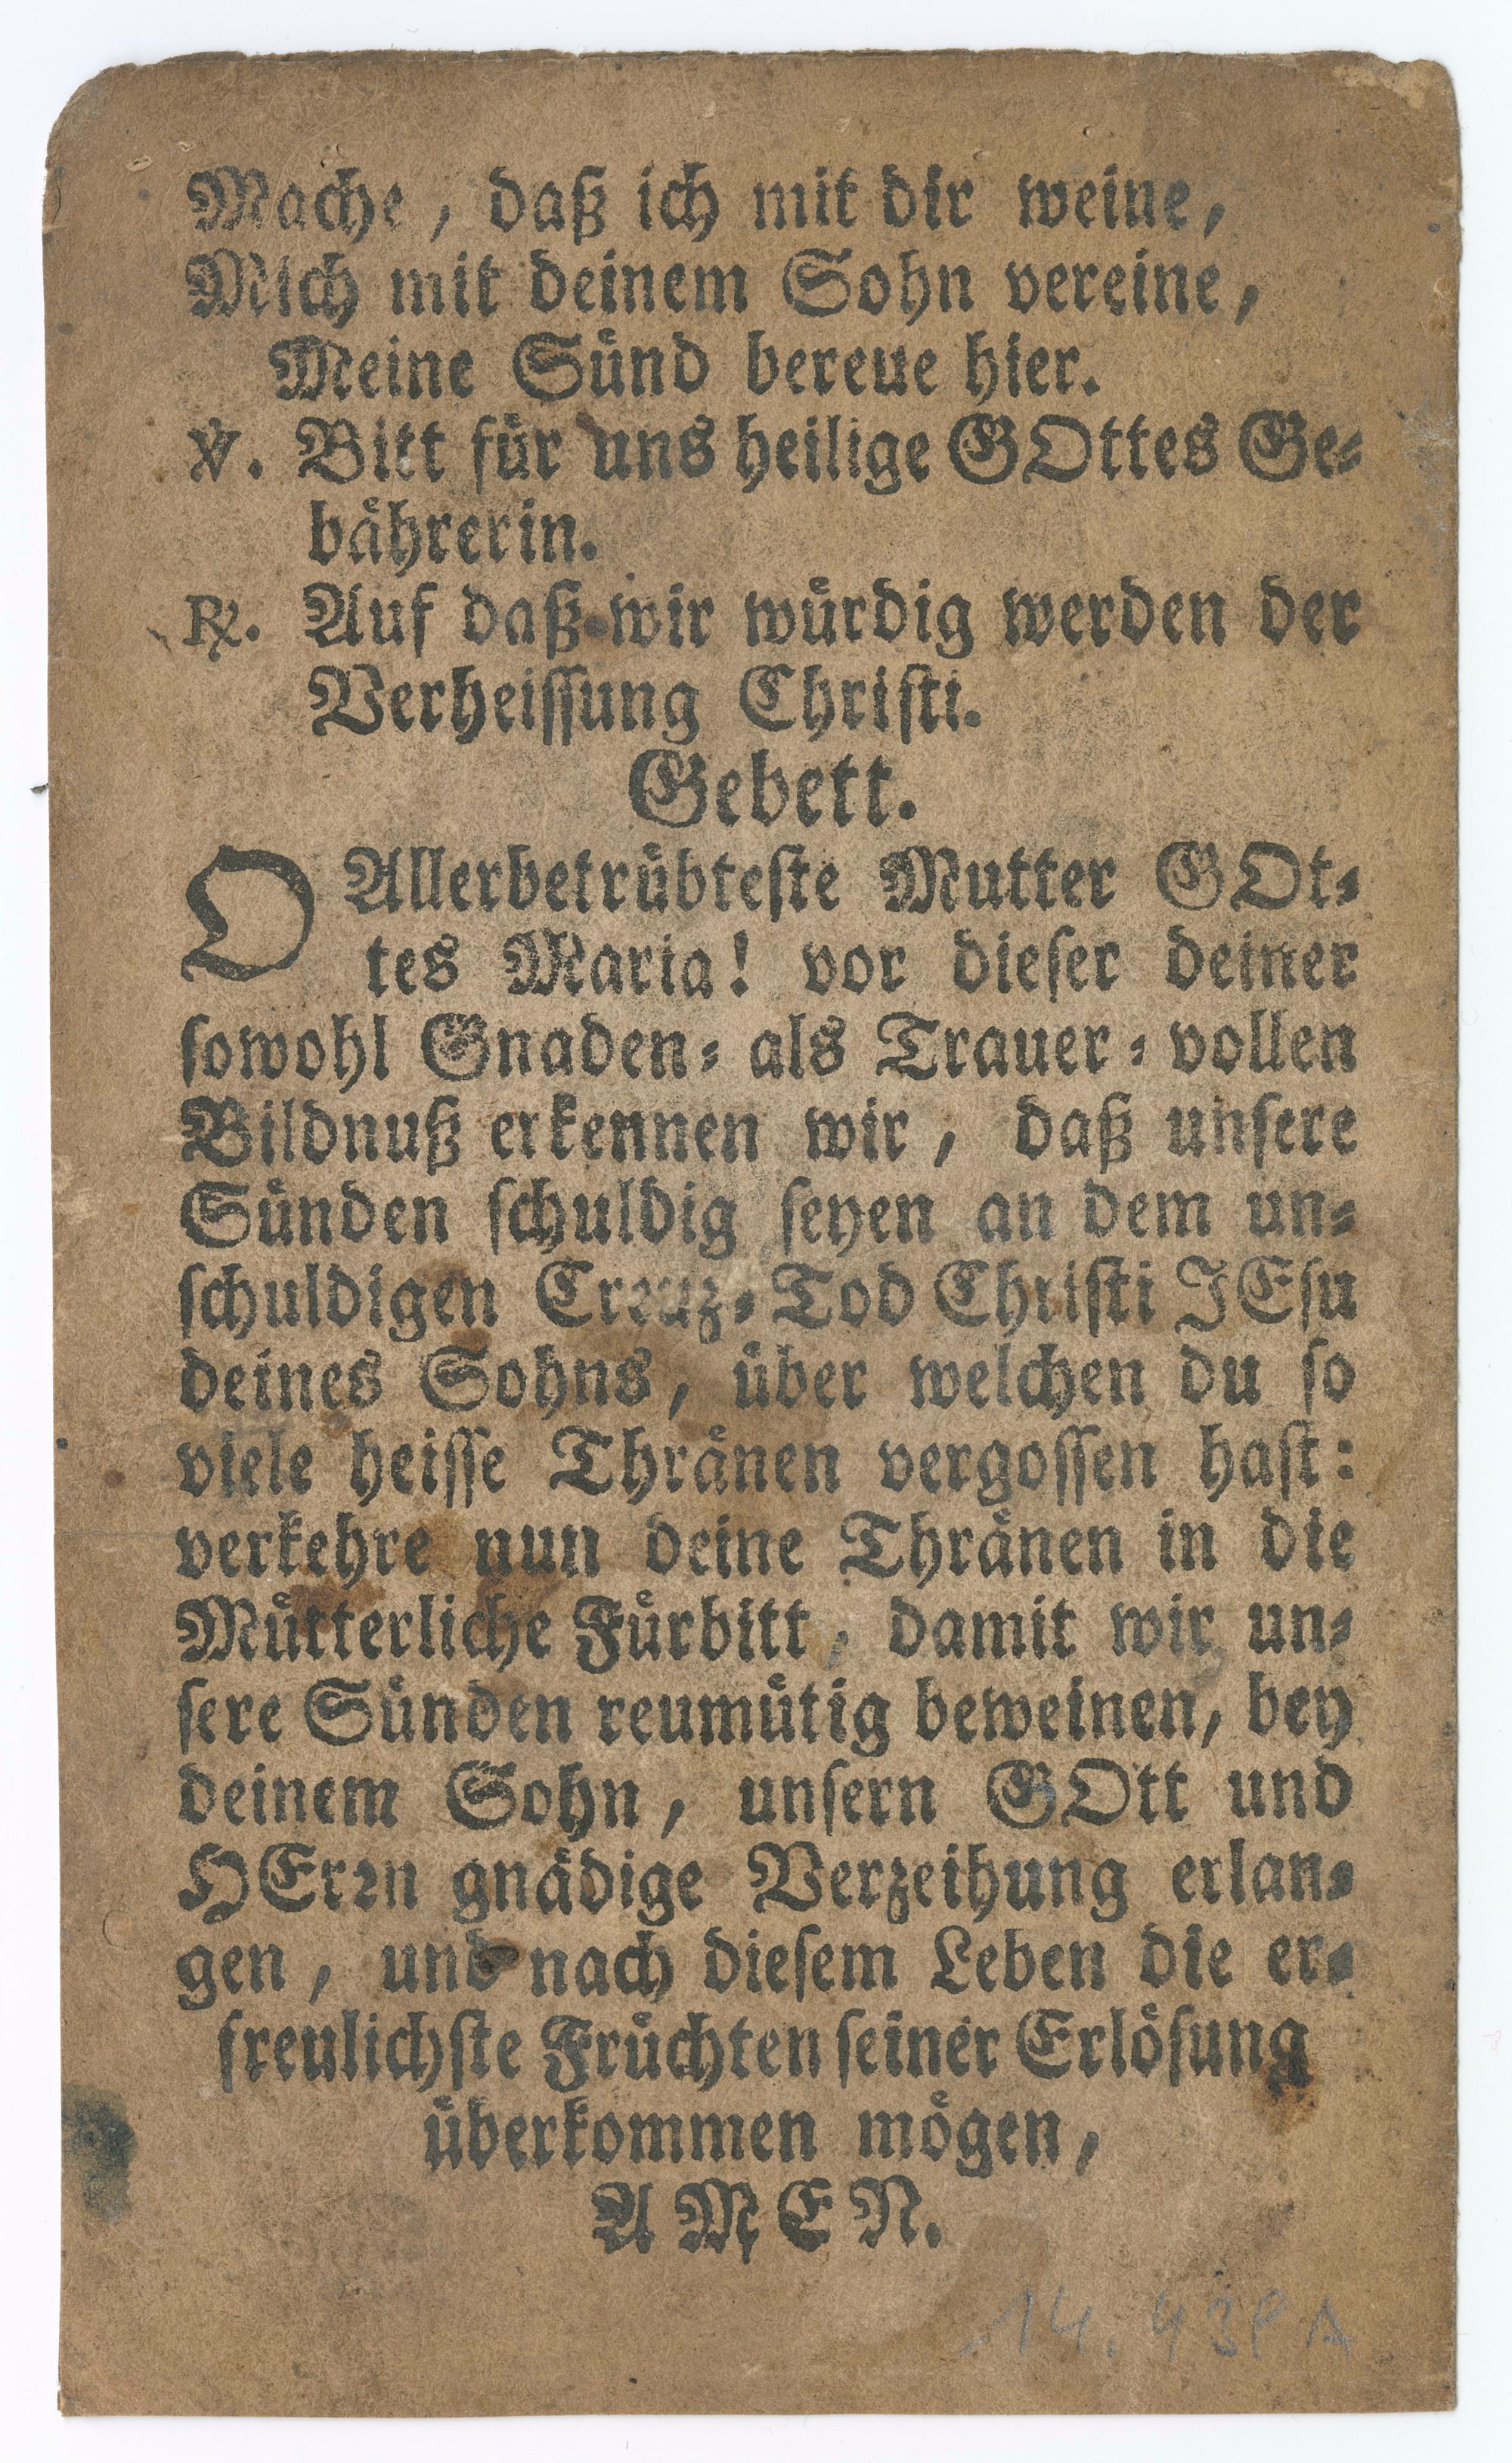 Mache, daß ich mit dir weine,
Mich mit deinem Sohn vereine,
Meine Sünd bereue hier.
℣. Bitt für uns heilige GOttes Ge-
bährerin.
℟. Auf daß wir würdig werden der
Verheissung Christi.
Gebett.
O Allerbetrübteste Mutter GOt-
tes Maria! vor dieser deiner
sowohl Gnaden- als Trauer-vollen
Bildnuß erkennen wir, daß unsere
Sünden schuldig seyen an dem un-
schuldigen Creuz-Tod Christi JEsu
deines Sohns, über welchen du so
viele heisse Thränen vergossen hast:
verkehre nun deine Thränen in die
Mütterliche Fürbitt, damit wir un-
sere Sünden reumütig beweinen, bey
deinem Sohn, unsern GOtt und
HErrn gnädige Verzeihung erlan-
gen, und nach diesem Leben die er-
freulichste Früchten seiner Erlösung
überkommen mögen,
AMEN.